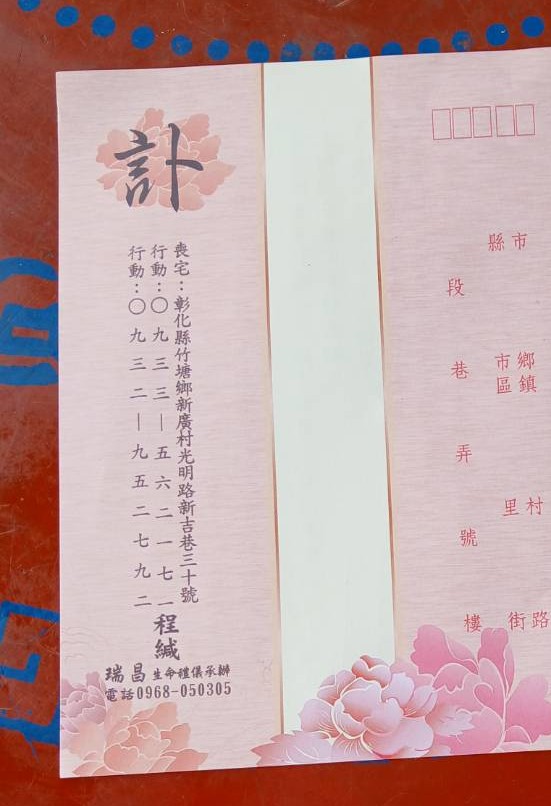 縣市
鄉鎮
市區
村里
路街
段
巷
弄
號
樓
訃
喪宅：彰化縣竹塘鄉新廣村光明路新吉巷三十號
行動：〇九三三—五六二一七一
行動：〇九三二—九五二七九二
程緘
瑞昌生命禮儀承辦
電話0968-050305